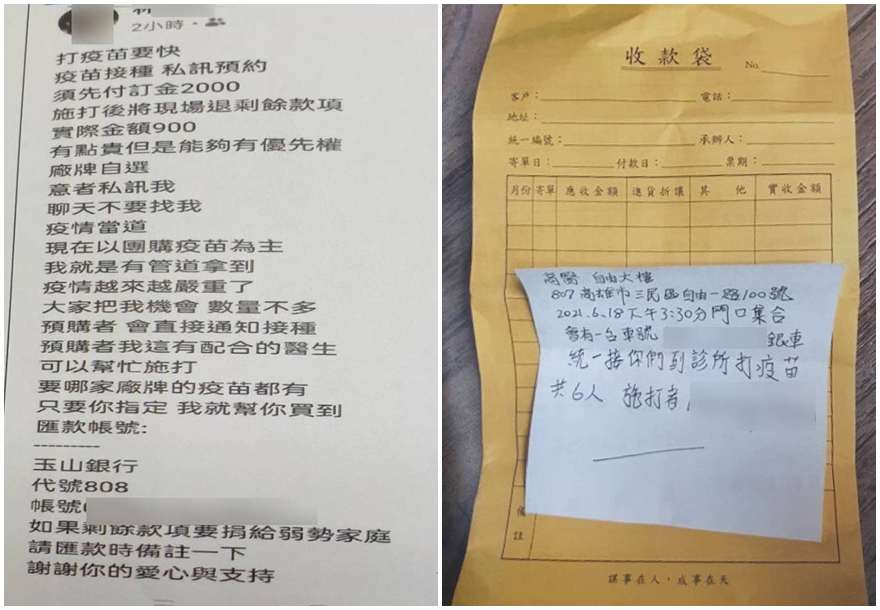 2小時
打疫苗要快
疫苗接種 私訊預約
須先付訂金2000
施打後將現場退剩餘款項
實際金額900
有點貴但是能夠有優先權
廠牌自選
意者私訊我
聊天不要找我
疫情當道
現在以團購疫苗為主
我就是有管道拿到
疫情越來越嚴重了
大家把我機會 數量不多
預購者 會直接通知接種
預購者我這有配合的醫生
可以幫忙施打
要哪家廠牌的疫苗都有
只要你指定 我就幫你買到
匯款帳號:
---------
玉山銀行
代號808
帳號
如果剩餘款項要捐給弱勢家庭
請匯款時備註一下
謝謝你的愛心與支持
收款袋
No.
客戶: 電話:
地址:
統一編號: 承辦人:
寄單日: 付款日: 票期:
月份 寄單 應收金額 進貨折讓 其他 實收金額
高醫 自由大樓
807高雄市三民區自由一路100號
2021.6.18下午3:30分門口集合
會有一台車號 銀車
統一接你們到診所打疫苗
共6人 施打者
備註
謀事在人,成事在天